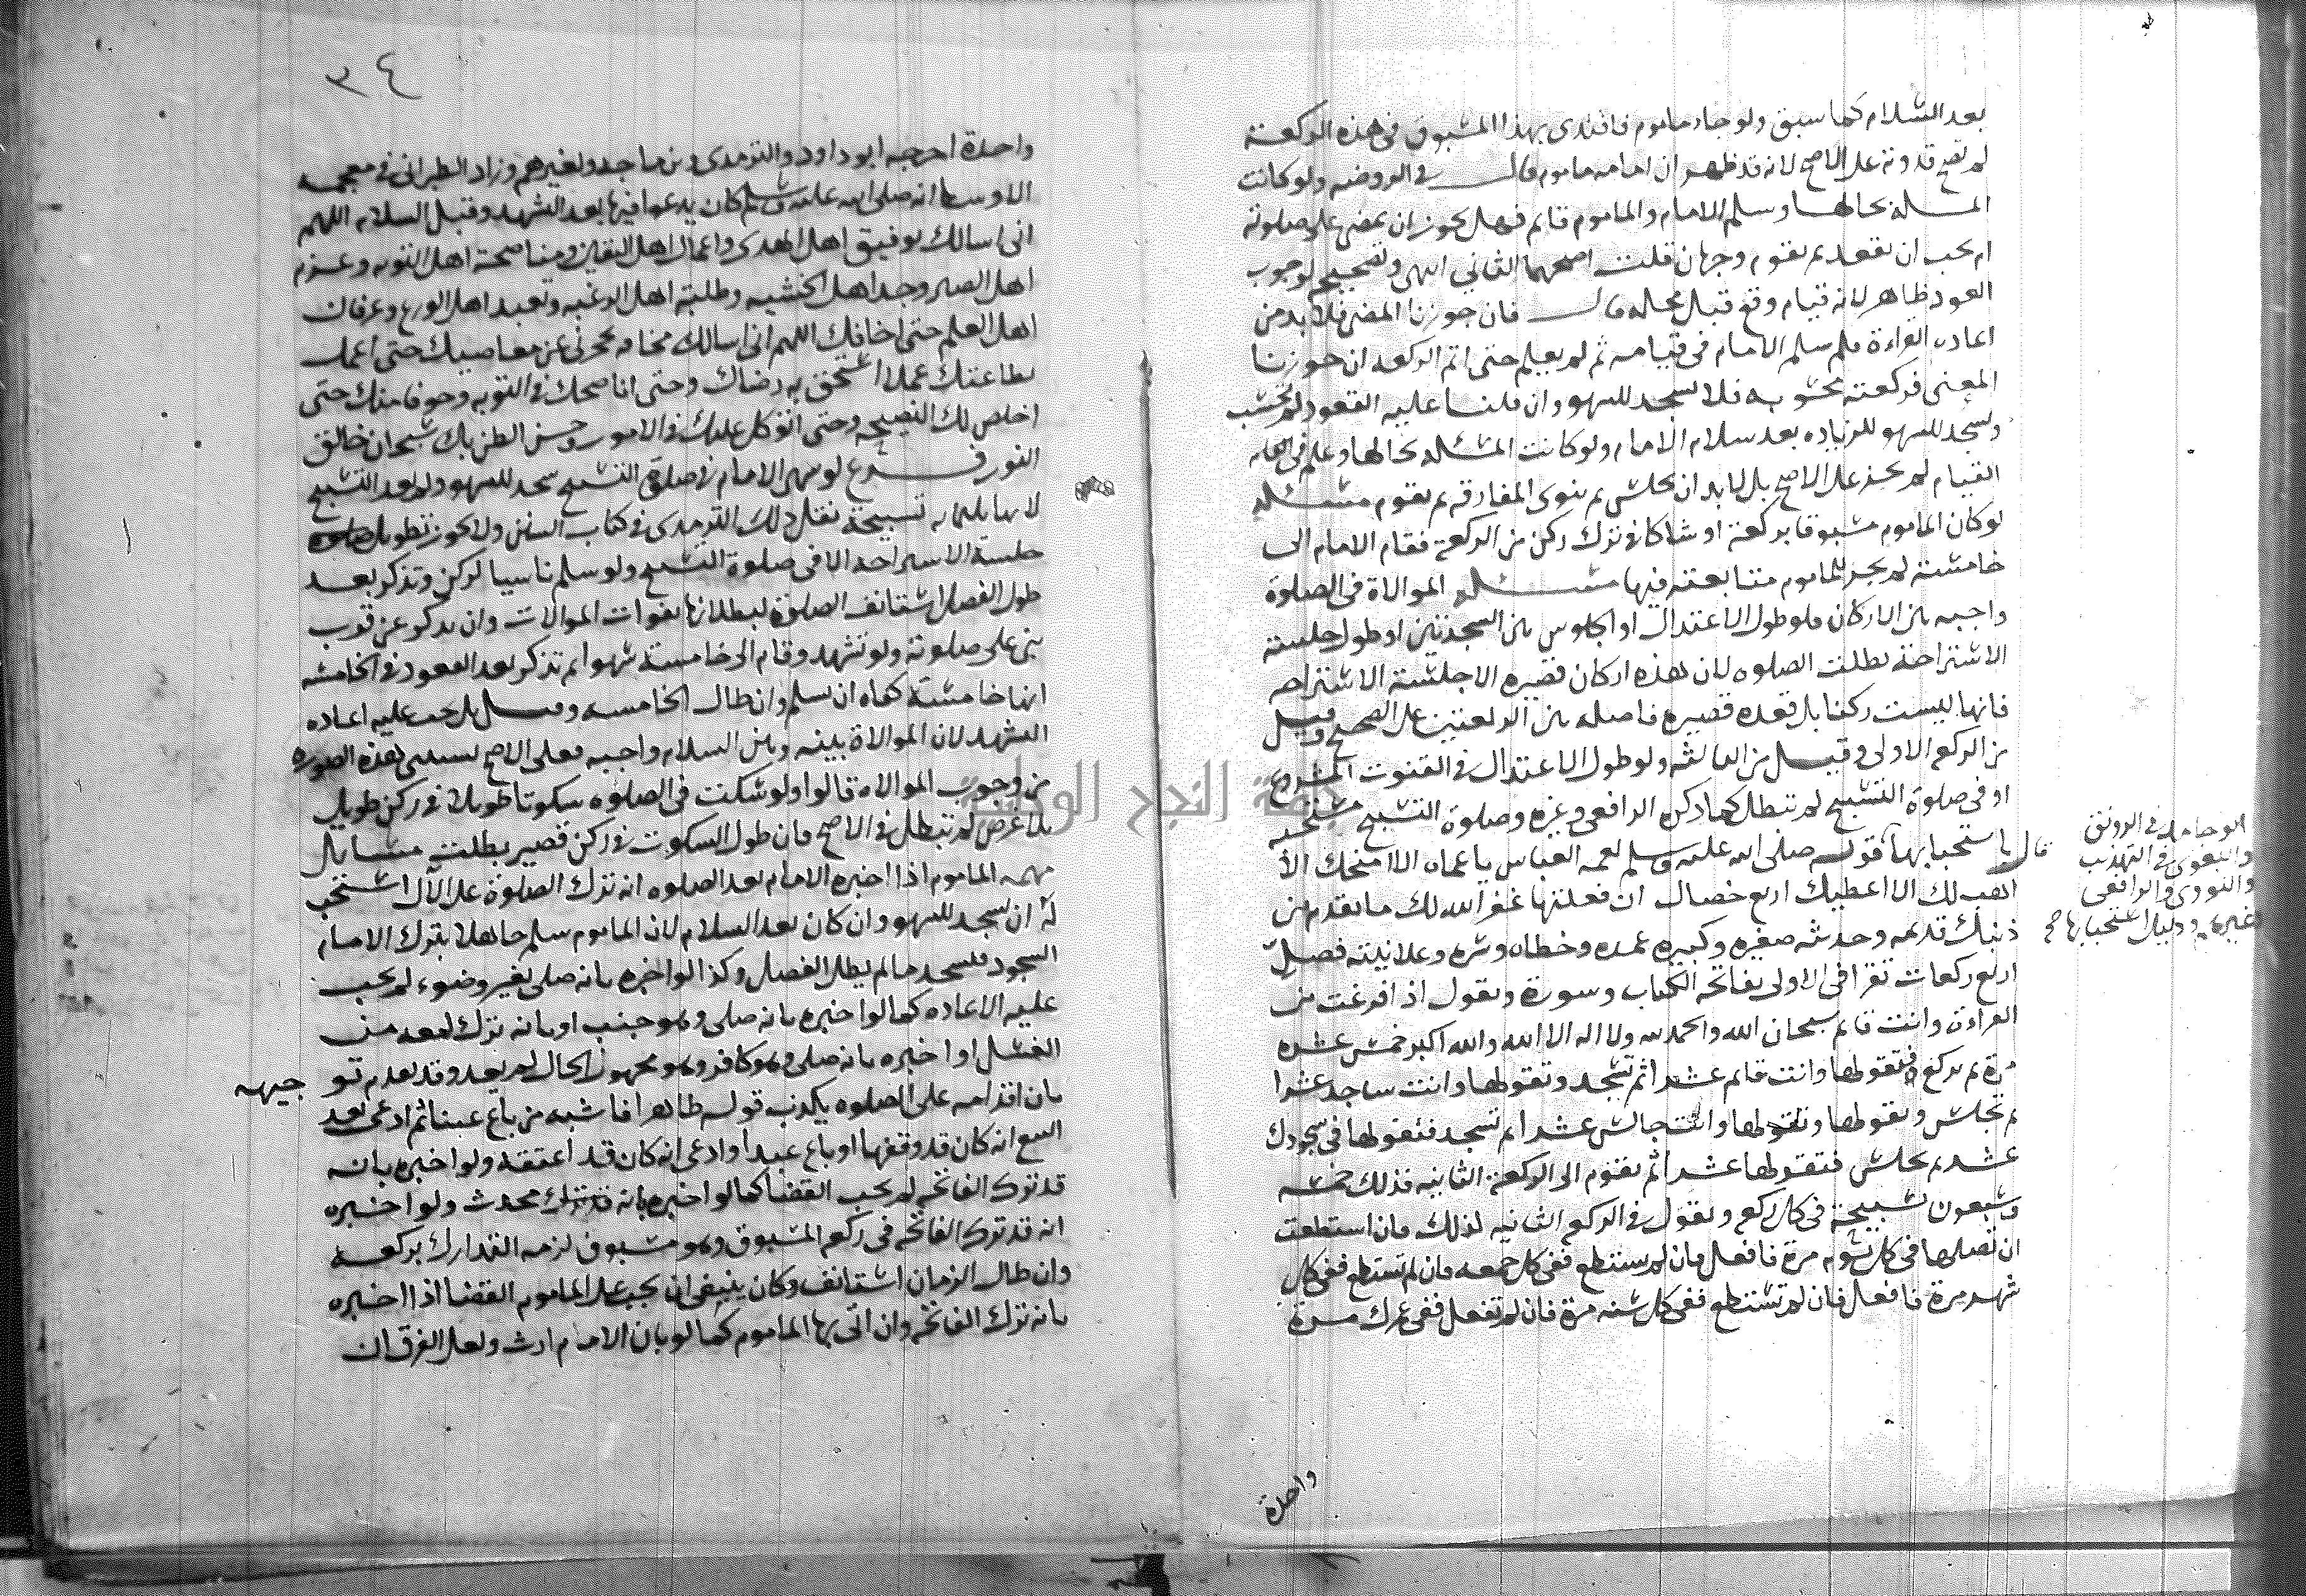 بعد السلام كما سبق ولو جاء ماموم فاقتدى بهذا المسبوق فى هذه الركعة
لم تصح قدوته على الاصح لانه قد ظهر ان امامه ماموم قال فى الروضه ولو كانت
المسله بحالها وسلم الامام والماموم قايم فهل يجوز ان يمضى على صلوته
ام يجب ان يقعد ثم يقوم وجهان قلت اصحهما الثانى انتهى وتصحيح لوجوب
العود ظاهر لانه قيام وقع قبل محله قال فان جوزنا المضى فلا بد من
اعادة القراءة فلو سلم الامام فى قيامه ثم لم يعلم حتى اتم الركعه ان جوزنا
المضى فركعته محسوبه فلا يسجد للسهو وان قلنا عليه القعود لم تحسب
ويسجد للسهو للزياده بعد سلام الامام ولو كانت المسئله بحالها وعلم فى
القيام لم يجز على الاصح بل لا بد ان يجلس ثم ينوى المفارقه ثم يقوم مسئله
لو كان الماموم مسبوقا بركعة او شاكا فى ترك ركن من الركعة فقام الامام الى
خامسة لم يجز للماموم متابعته فيها مسئله الموالاة فى الصلوة
واجبه بين الاركان فلو طول الاعتدال او الجلوس بين السجدتين او طول جلسة
الاستراحة بطلت الصلوه لان هذه اركان قصيره الا جلسة الاستراحه
فانها ليست ركنا بل قعده قصيره فاصله بين الركعتين على الصحيح وقيل
من الركعه الاولى وقيل من الثانيه ولو طول الاعتدال فى القنوت المشروع
او فى صلوة التسبيح لم تبطل كما ذكره الرافعى وغيره وصلوة التسبيح مستحبه
قال باستحبابها
ابو حامد فى الرونق
والبغوى فى التهذيب
والنووى والرافعى
وغيرهم ودليل استحبابها صح
قوله صلى الله عليه وسلم لعمه العباس يا عماه الا امنحك الا
اهب لك الا اعطيك اربع خصال ان فعلتها غفر الله لك ما تقدم من
ذنبك قديمه وحديثه صغيره وكبيره عمده وخطاه وسره وعلانيته فصل
اربع ركعات تقرا فى الاولى بفاتحه الكتاب وسورة وتقول اذا فرغت من
القراءة وانت قايم سبحان الله والحمد لله ولا اله الا الله والله اكبر خمس عشره
مرة ثم تركع فتقولها وانت قايم عشرا ثم تسجد وتقولها وانت ساجد عشرا
ثم تجلس وتقولها وتقولها وانت جالس عشرا ثم تسجد فتقولها فى سجودك
عشرا ثم تجلس فتقولها عشرا ثم تقوم الى الركعة الثانيه فذلك خمسه
وسبعون تسبيحة فى كل ركعه وتقول فى الركعه الثانيه لذلك فان استطعت
ان تصليها فى كل يوم مرة فافعل فان لم تستطع ففى كل جمعه فان لم تستطع ففى كل
شهر مرة فافعل فان لم تستطع ففى كل سنه مرة فان لم تفعل ففى عمرك مرة
واحدة
٣٤
واحدة اخرجه ابو داود والترمذى وبن ماجه ولغيرهم وزاد الطبرانى فى معجمه
الاوسط انه صلى الله عليه وسلم كان يدعوا فيها بعد التشهد وقبل السلام اللهم
انى اسالك توفيق اهل الهدى واعمال اهل اليقين ومناصحة اهل التوبه وعزم
اهل الصبر وجد اهل الخشيه وطلبة اهل الرغبه وتعبد اهل الورع وعرفان
اهل العلم حتى اخافك اللهم انى اسالك مخافه تحجزنى عن معاصيك حتى اعمل
بطاعتك عملا استحق به رضاك وحتى اناصحك فى التوبه وخوفا منك حتى
اخلص لك النصيحه وحتى اتوكل عليك فى الامور وحسن الظن بك سبحان خالق
النور فرع لو سهى الامام فى صلوة التسبيح سجد للسهو ولم يعد التسبيح
لانها ثلثمايه تسبيحة نقل ذلك الترمذى فى كتاب السنن ولا يجوز تطويل صلوه
جلسة الاستراحه الا فى صلوة التسبيح ولو سلم ناسيا لركن وتذكر بعد
طول الفصل استانف الصلوة لبطلانها بفوات الموالات وان تذكر عن قرب
بنى على صلوته ولو تشهد وقام الى خامسة سهوا ثم تذكر بعد القعود فى الخامسه
انها خامسة كفاه ان يسلم وان طال الخامسه وقيل بل يجب عليه اعاده
التشهد لان الموالاة بينه وبين السلام واجبه فعلى الاصح يستثنى هذه الصوره
من وجوب الموالاه قالوا ولو سكت فى الصلوه سكوتا طويلا فى ركن طويل
بلا غرض لم تبطل فى الاصح فان طول السكوت فى ركن قصير بطلت مسايل
مهمه الماموم اذا اخبره الامام بعد الصلوه انه ترك الصلوة على الآل استحب
له ان يسجد للسهو وان كان بعد السلام لان الماموم سلم جاهلا بترك الامام
السجود فيسجد ما لم يطل الفصل وكذا لو اخبره بانه صلى بغير وضوء لم يجب
عليه الاعاده كما لو اخبره بانه صلى وهو جنب او بانه ترك لمعه من
الغسل او اخبره بانه صلى وهو كافر وهو مجهول الحال لم يعد وقد تقدم تو جيهه
بان اقدامه على الصلوه يكذب قوله ظاهرا فاشبه من باع عينا ثم ادعى بعد
البيع انه كان قد وقفها او باع عبدا وادعى انه كان قد اعتقه ولو اخبره بانه
قد ترك الفاتحه لم يجب القضا كما لو اخبره بانه محدث ولو اخبره
انه قد ترك الفاتحه فى ركعه المسبوق وهو مسبوق لزمه التدارك بركعه
وان طال الزمان استانف وكان ينبغى ان يجب على الماموم القضا اذا اخبره
بانه ترك الفاتحه وان اتى بها الماموم كما لو بان الامام ولعل الفرق ان